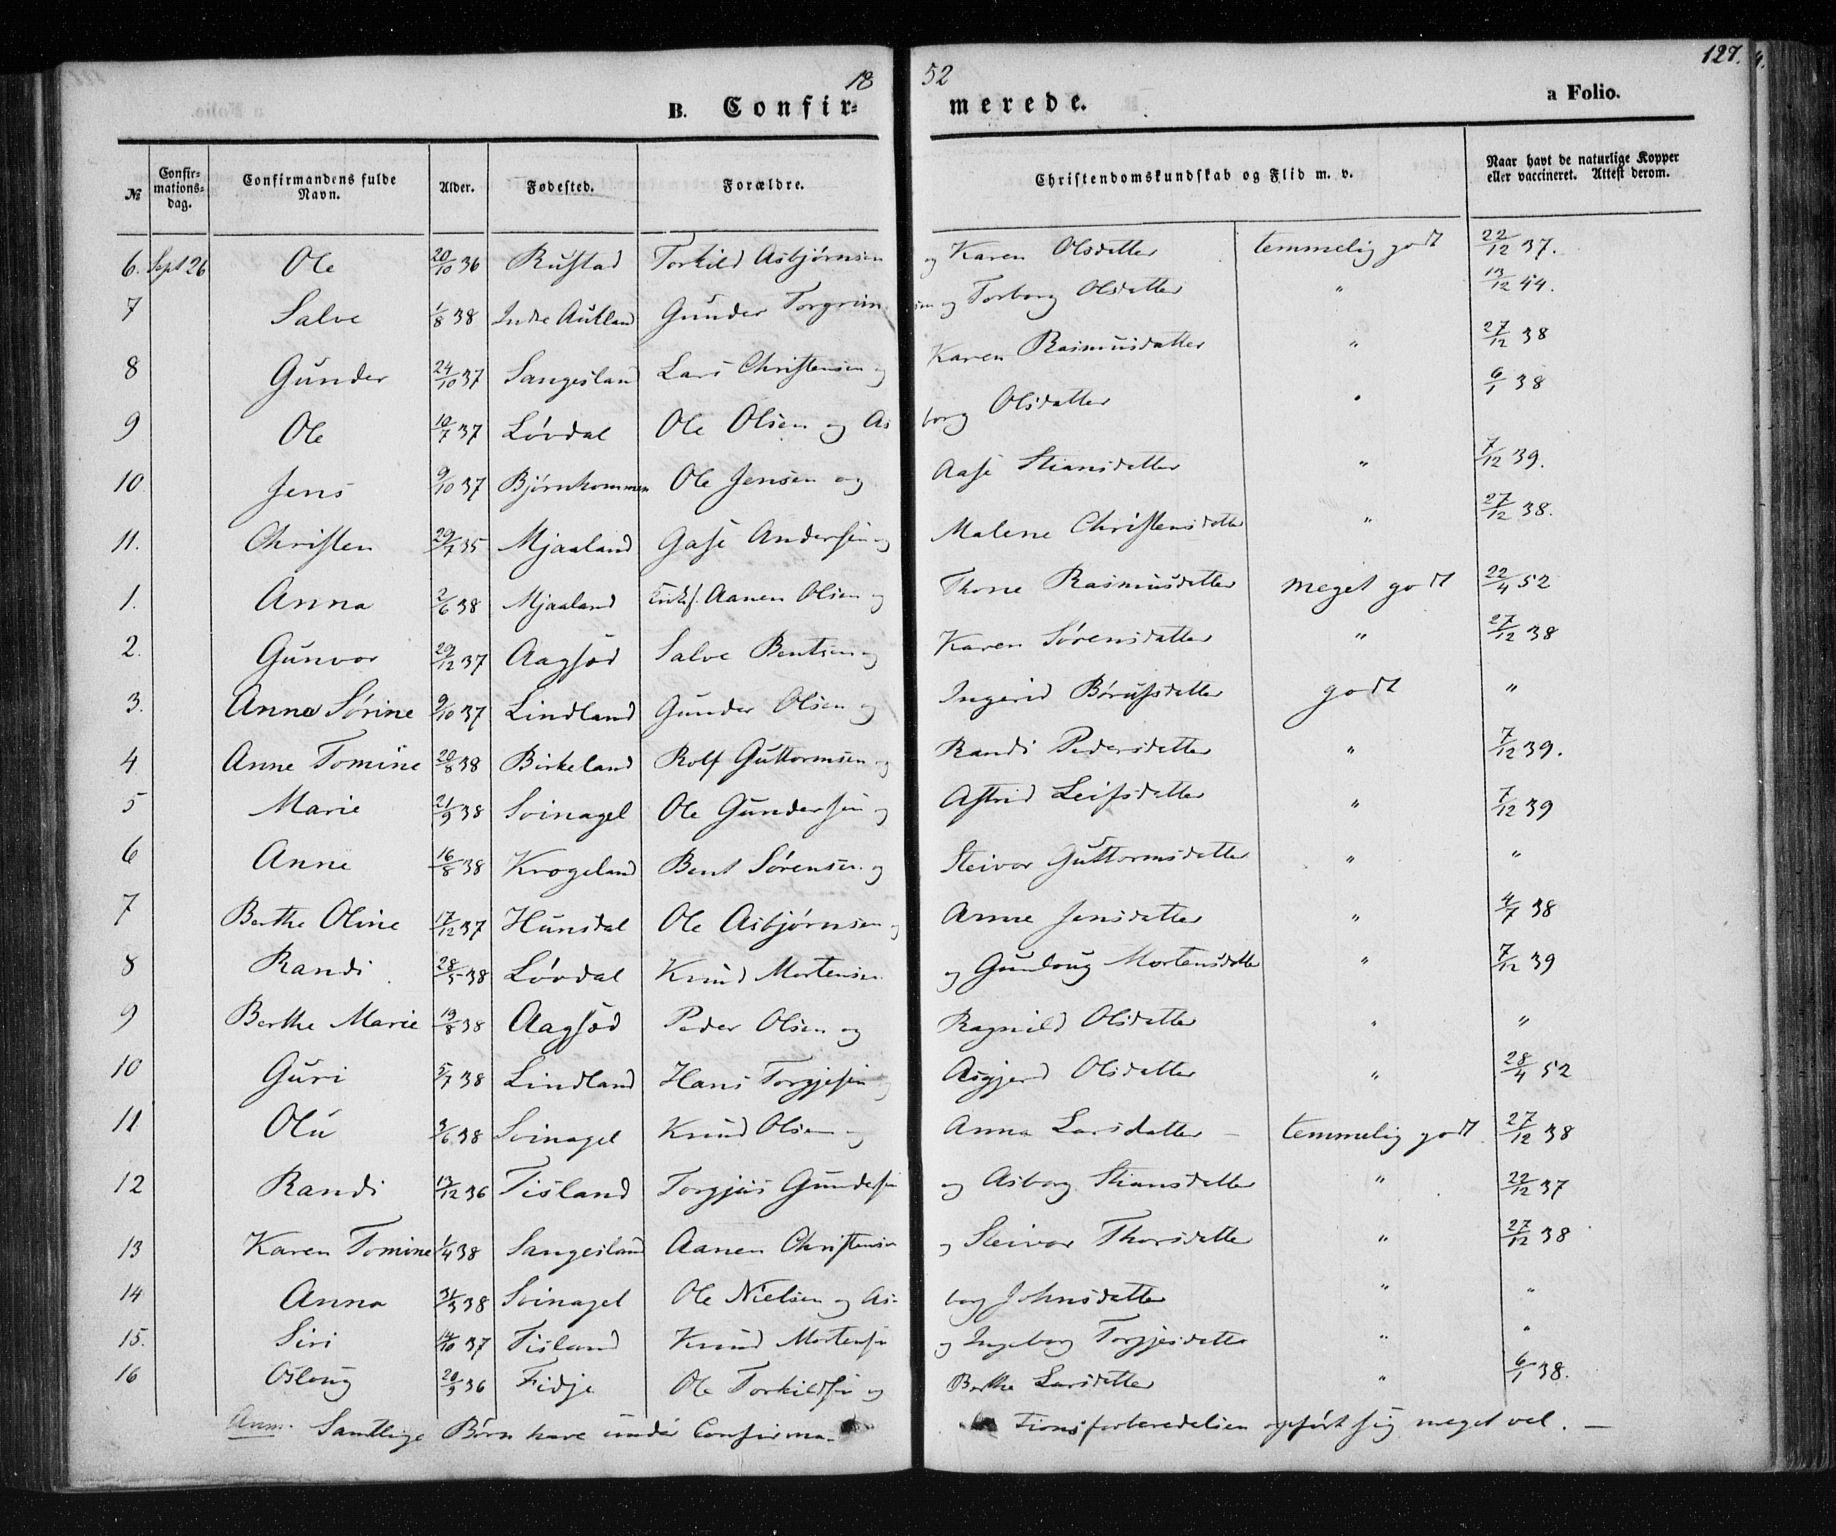 18 52 127.
B. Confir- merede. a Folio.
№ Confir-mations-dag. Confirmandens fulde Navn. Alder. Fødested. Forældre. Christendomskundskab og Flid m. v. Naar havt de naturlige Kopper eller vaccineret. Attest derom.
6. Sept 26 Ole 20/10 36 Rustad Torkild Asbjørnsen og Karen Olsdatter temmelig godt 22/12 37.
7 Salve 1/8 38 Indre Autland Gunder Torgrim sen og Torborg Olsdatter " 13/12 44.
8 Gunder 24/10 37 Sangesland Lars Christensen og Karen Rasmusdatter " 27/12 38
9 Ole 10/7 37 Løvdal Ole Olsen og As borg Olsdatter " 6/1 38
10 Jens 9/10 37 Bjørnkommen Ole Jensen og Aase Stiansdatter " 7/12 39.
11. Christen 29/7 35 Mjaaland Gase Andersen og Malene Christensdatter " 27/12 38.
1. Anna 2/6 38 Mjaaland Aanen Olsen og Thone Rasmusdatter meget godt 22/4 52
2. Gunvor 29/12 37 Aagsød Salve Bentsen og Karen Sørensdatter " 27/12 38
3. Anna Sørine 9/10 37 Lindland Gunder Olsen og Ingerid Børufsdatter godt "
4 Anne Tomine 20/8 38 Birkeland Rolf Guttormsen og Randi Pedersdatter " 7/12 39.
5 Marie 21/9 38 Svinagel Ole Gundersen og Astrid Leifsdatter " 7/12 39
6 Anne 16/8 38 Krogeland Bent Sørensen og Steivor Guttormsdatter " "
7 Berthe Oline 17/12 37 Hunsdal Ole Asbjørnsen og Anne Jensdatter " 4/7 38
8 Randi 28/5 38 Løvdal Knud Mortensen og Gunloug Mortensdatter " 7/12 39
9 Berthe Marie 19/8 38 Aagsød Peder Olsen og Ragnild Olsdatter " "
10 Guri 5/7 38 Lindland Hans Torgjesen og Asgjerd Olsdatter " 28/4 52
11 Olu 3/6 38 Svinagel Knud Olsen og Anna Larsdatter – temmelig godt 27/12 38
12 Randi 13/12 36 Tisland Torgjus Gundesen og Asborg Stiansdatter " 22/12 37
13 Karen Tomine 1/4 38 Sangesland Aanen Christensen og Steivor Thorsdatter " 27/12 38
14 Anna 31/3 38 Svinagel Ole Nielsen og As- borg Johnsdatter " "
15. Siri 14/10 37 Tisland Knud Mortensen og Ingeborg Torgjesdatter " "
16 Osloug 20/5 36 Fidje Ole Torkildsen og Berthe Larsdatter " 6/1 38.
Anm. Samtlige Børn have under Confirma- tionsforberedelsen opført sig meget vel. —